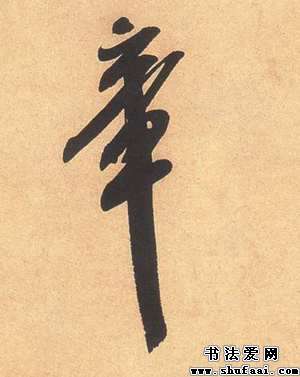 章
书法爱网
www.shufaai.com